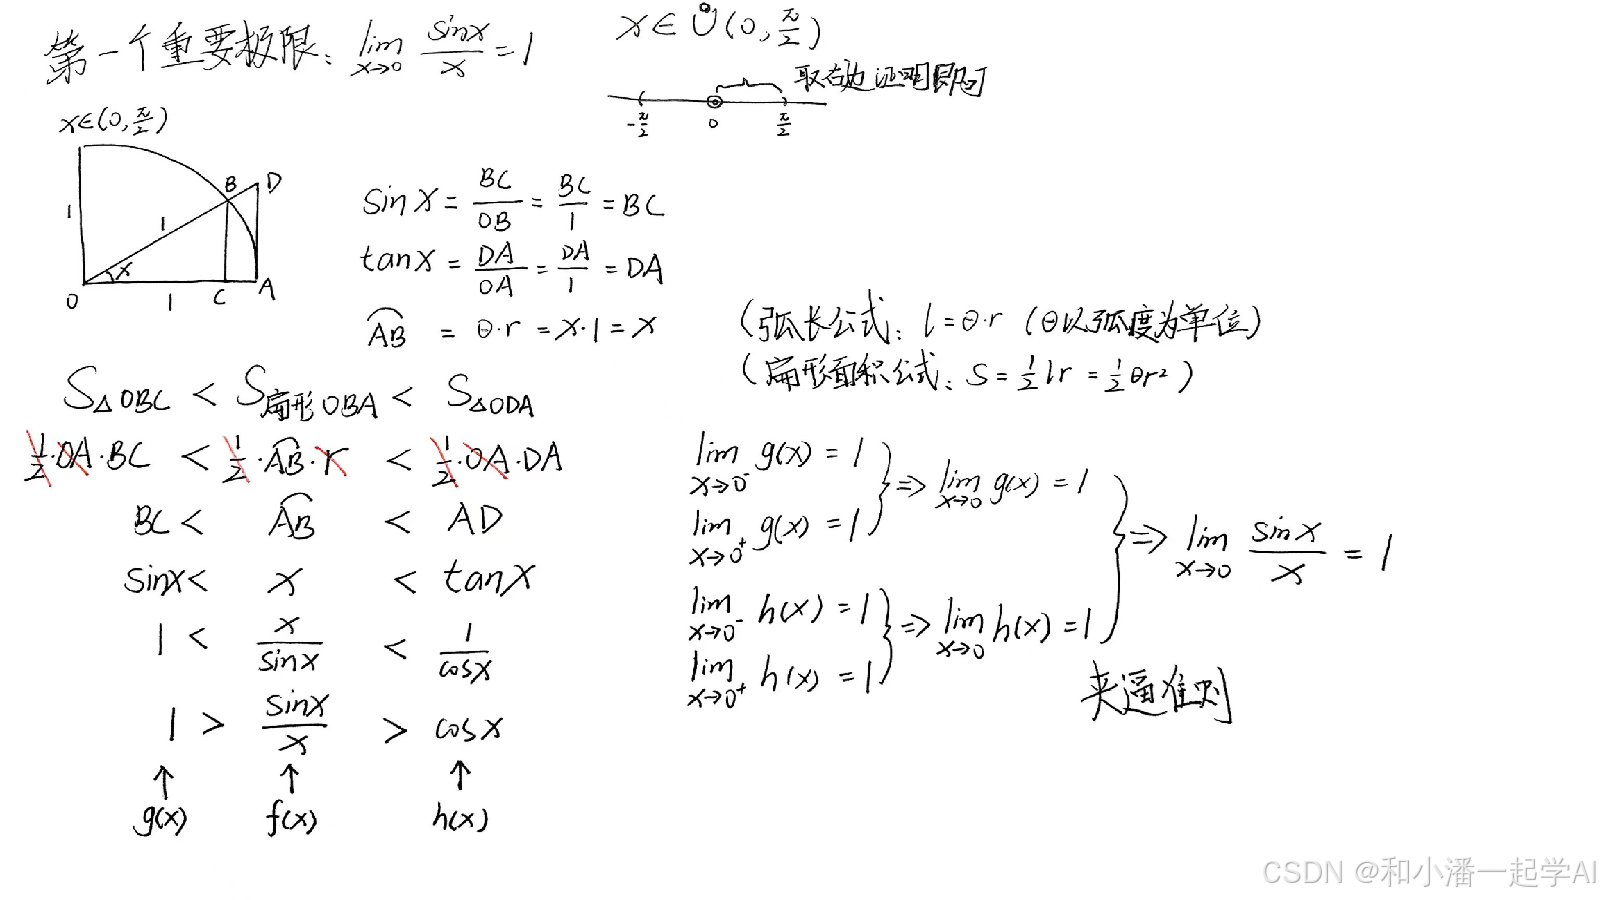 第一个重要极限: lim x→0 sinx/x = 1
x∈Ů(0, π/2)
取右边证明即可
-π/2 0 π/2
x∈(0, π/2)
B D
1 1
x
O 1 C A
sinx = BC/OB = BC/1 = BC
tanx = DA/OA = DA/1 = DA
⌒AB = θ·r = x·1 = x
(弧长公式: l=θ·r (θ以弧度为单位)
(扇形面积公式: S=1/2 lr = 1/2 θr²)
S△OBC < S扇形OBA < S△ODA
1/2·OA·BC < 1/2·⌒AB·r < 1/2·OA·DA
BC < ⌒AB < AD
sinx < x < tanx
1 < x/sinx < 1/cosx
1 > sinx/x > cosx
↑ ↑ ↑
g(x) f(x) h(x)
lim x→0⁻ g(x) = 1
lim x→0⁺ g(x) = 1
⇒ lim x→0 g(x) = 1
lim x→0⁻ h(x) = 1
lim x→0⁺ h(x) = 1
⇒ lim x→0 h(x) = 1
⇒ lim x→0 sinx/x = 1
夹逼准则
CSDN @和小潘一起学AI